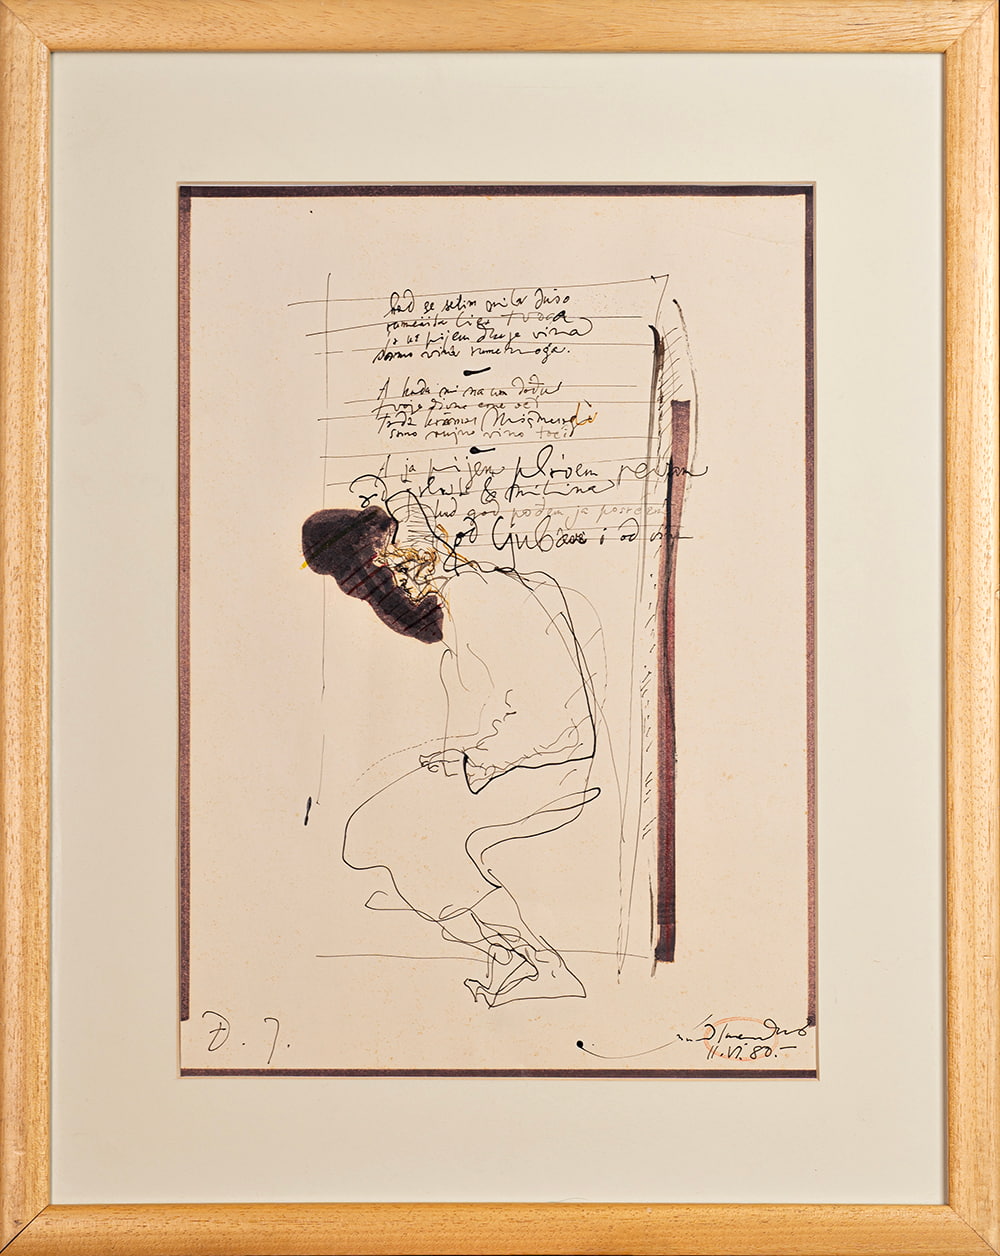 Kad se setim mila dušo
rumenila lica tvoga
ja ne pijem druge vina
samo vina rumenoga.
A kada mi na um dođu
tvoje divne crne oči
tada krčmar
samo mrgno vino toči
A ja pijem plivem pevam
od & miline
kud god pođem ja posrćem
od ljubavi i od vina
Đ. J.
11. VI. 80.-